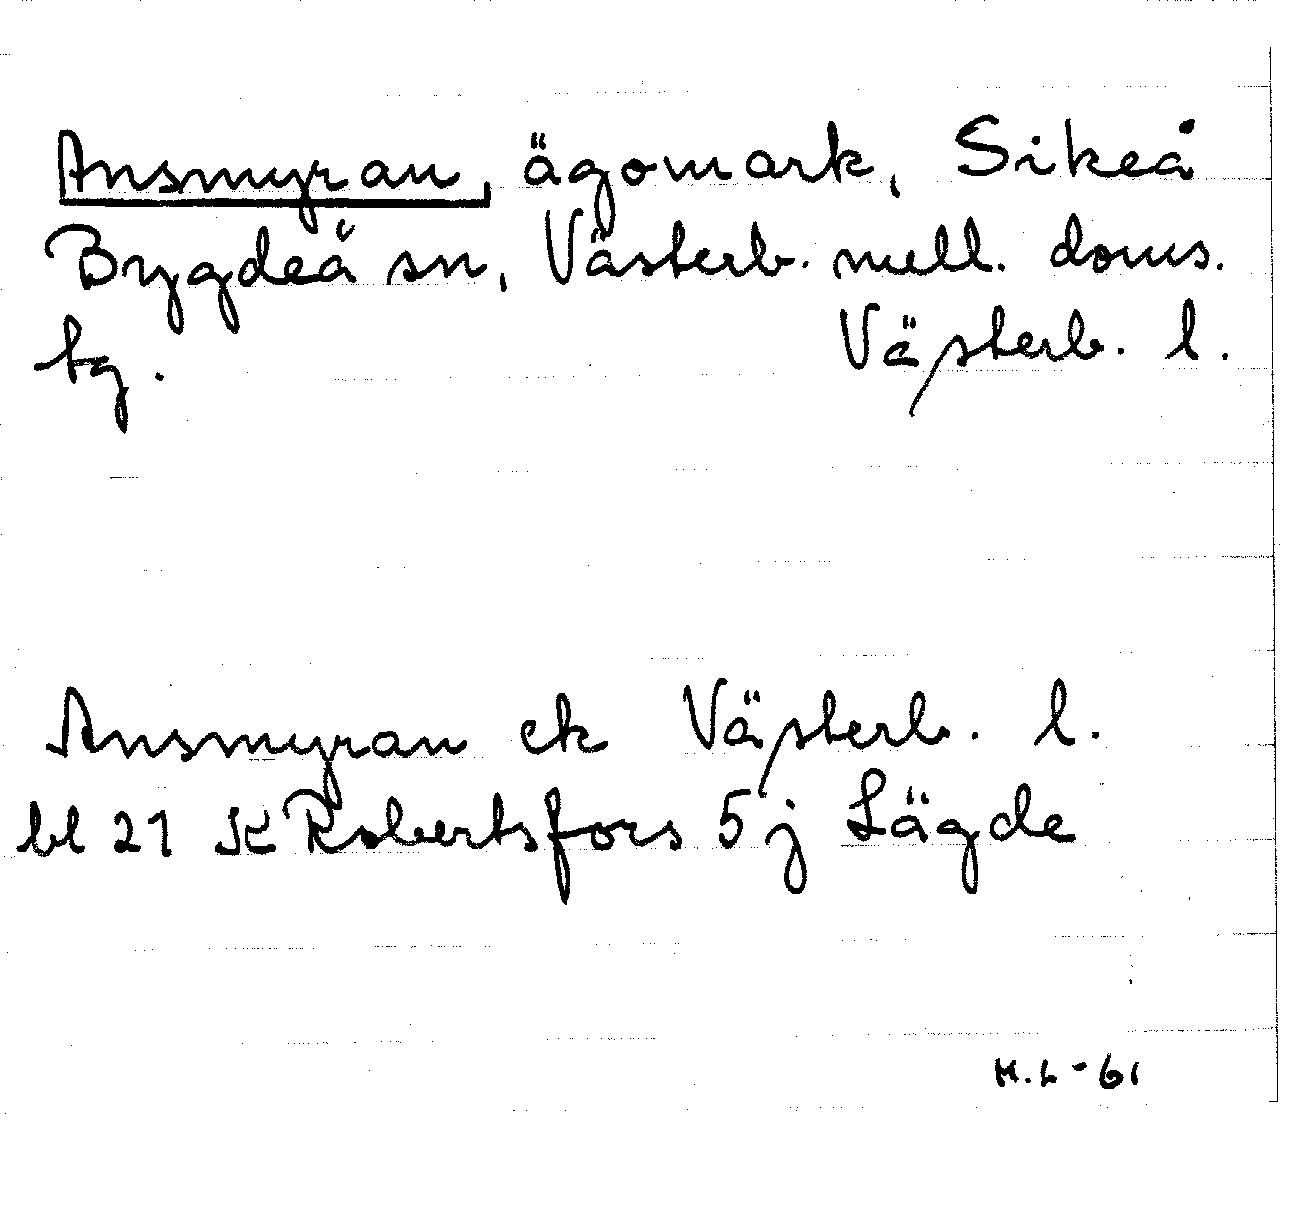 Ansmyran, ägomark, Sikeå
Bygdeå sn, Västerb. mell. doms.
tg. Västerb. l.
Ansmyran ek Västerb. l.
bl 21 K Robertsfors 5j Lägde
H.L-61